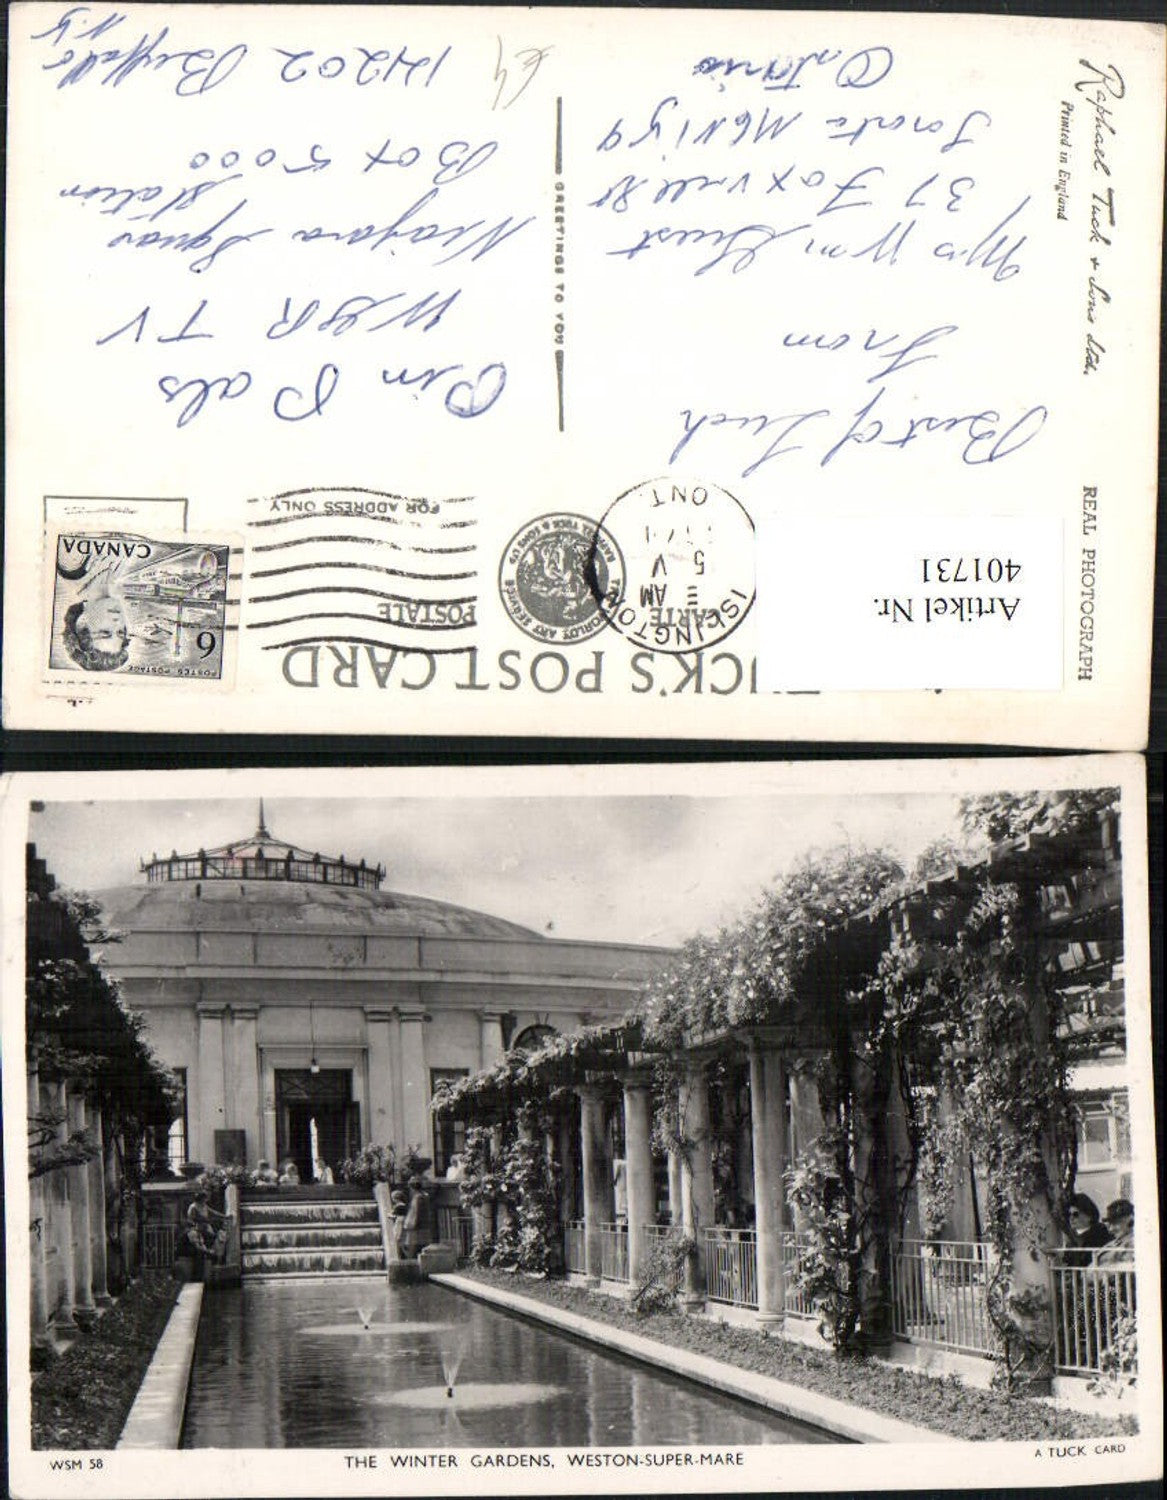 TUCK'S POST CARD
CARTE POSTALE
FOR ADDRESS ONLY
RAPHAEL TUCK & SONS LTD
THE WORLD'S ART SERVICE
ISLINGTON
AM
5 V
ONT.
6
POSTES POSTAGE
CANADA
Artikel Nr.
401731
REAL PHOTOGRAPH
Raphael Tuck & Sons Ltd.
Printed in England
GREETINGS TO YOU
Best of Luck
From
Mrs Wm
37
Ontario
Pin Pals
WGR TV
Niagara Square
Station
Box 5000
14202 Buffalo
N.Y
THE WINTER GARDENS, WESTON-SUPER-MARE
WSM 58
A TUCK CARD